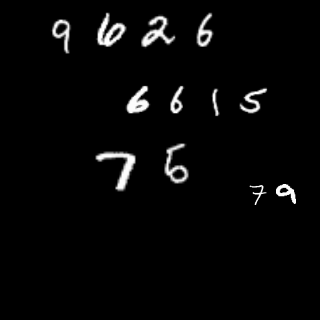 9626
6615
75
79